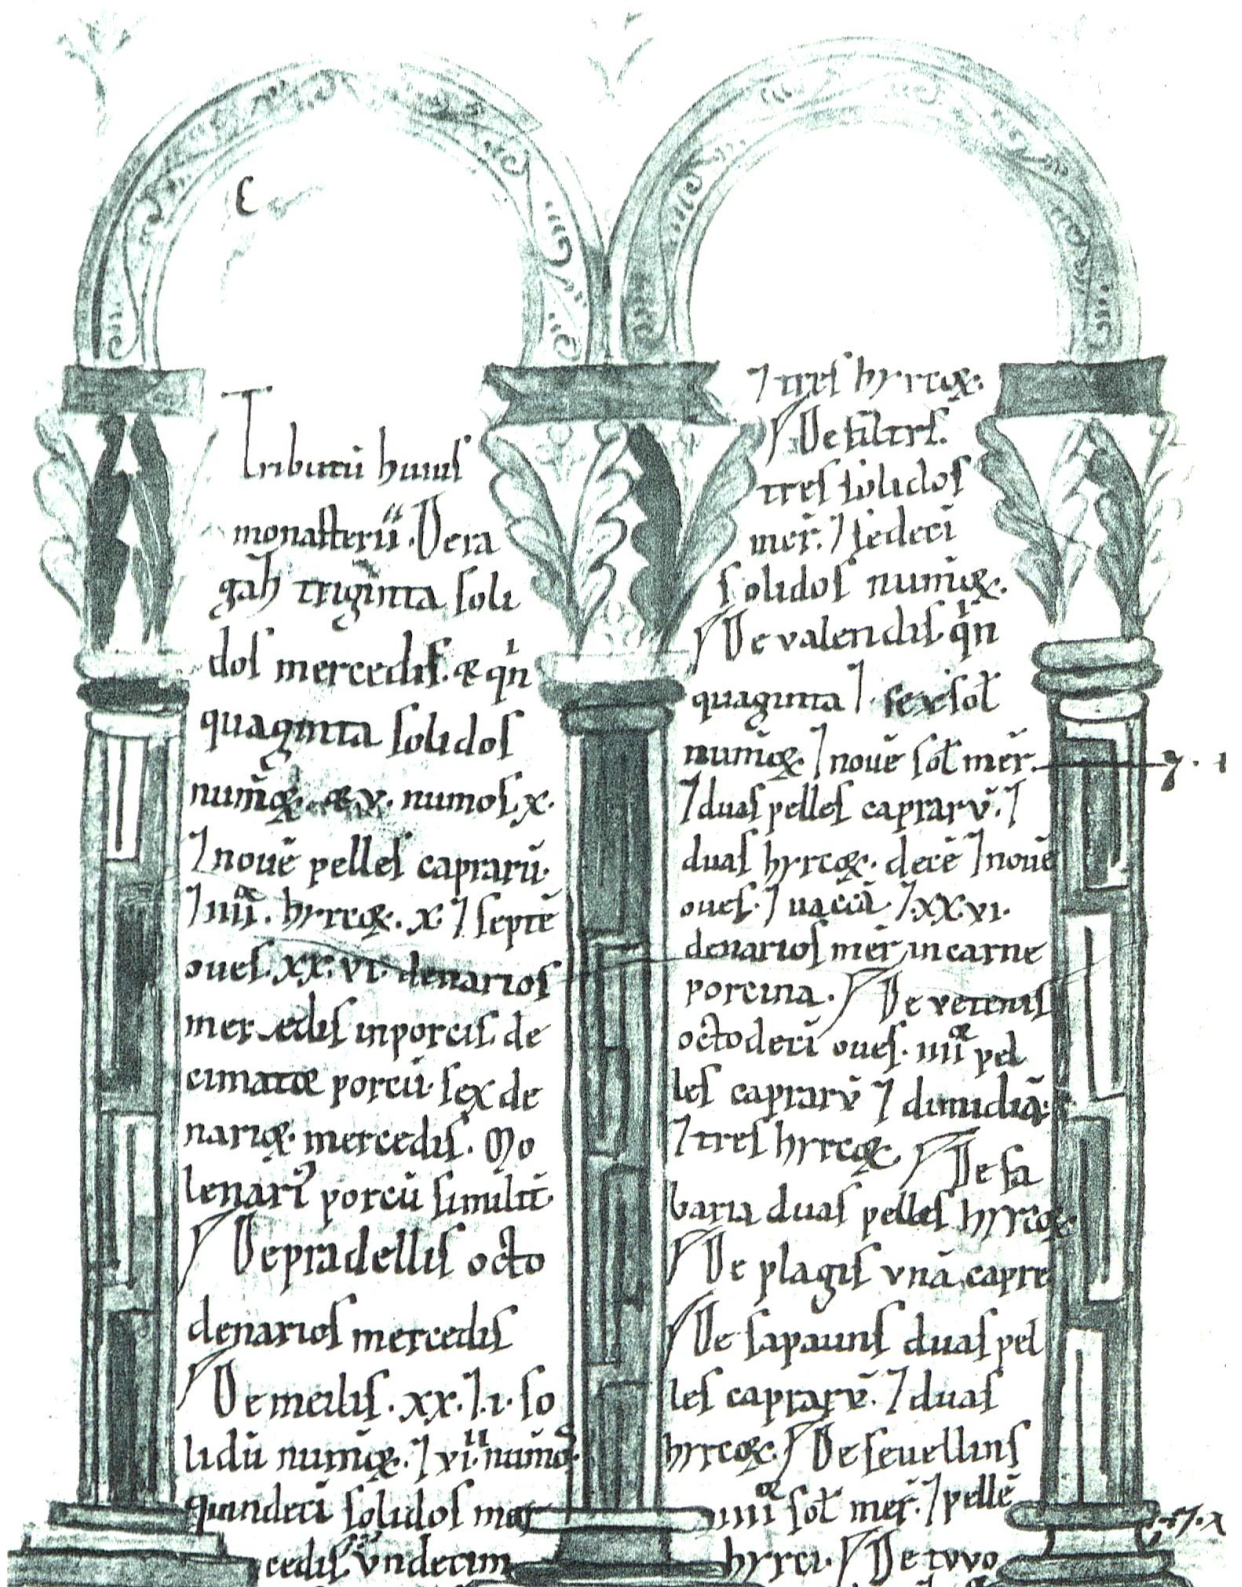 Tributū huius
monasterii. De ra
gah triginta soli
dos mercedis. & qin
quaginta solidos
num̄oꝝ. & v. numos x.
⁊ nouē pelles caprarū.
⁊ iiii. hyrcoꝝ. x. ⁊ septē
oues. xx. vi. denarios
mercedis in porcis. de
cimatoe porcū. sex de
narioꝝ mercedis. Mo
lenarī porcū similit̄.
De pradellis octo
denarios mercedis
De meilis. xx. ⁊ .i. so
lidū num̄oꝝ. ⁊ vi. num̄o
quindeci solidos mer
cedis. vndecim
⁊ tres hyrcoꝝ.
De filtris.
tres solidos
mer̄. ⁊ sedecī
solidos num̄oꝝ.
De valendis qin
quaginta ⁊ sex sol
num̄oꝝ. ⁊ nouē sol mer̄.
⁊ duas pelles caprarū. ⁊
duas hyrcoꝝ. decē ⁊ nouē
oues. ⁊ uaccā ⁊ .xx.vi.
denarios mer̄ in carne
porcina. De vetenis
octodecī oues. iiii pel
les caprarū ⁊ dimidiā.
⁊ tres hyrcoꝝ De sa
baria duas pelles hyrcoꝝ
De plagis vnā capre
De sapauns duas pel
les caprarū. ⁊ duas
hyrcoꝝ. De seuellins
iiii sol mer̄. ⁊ pellē
hyrci. De tovo